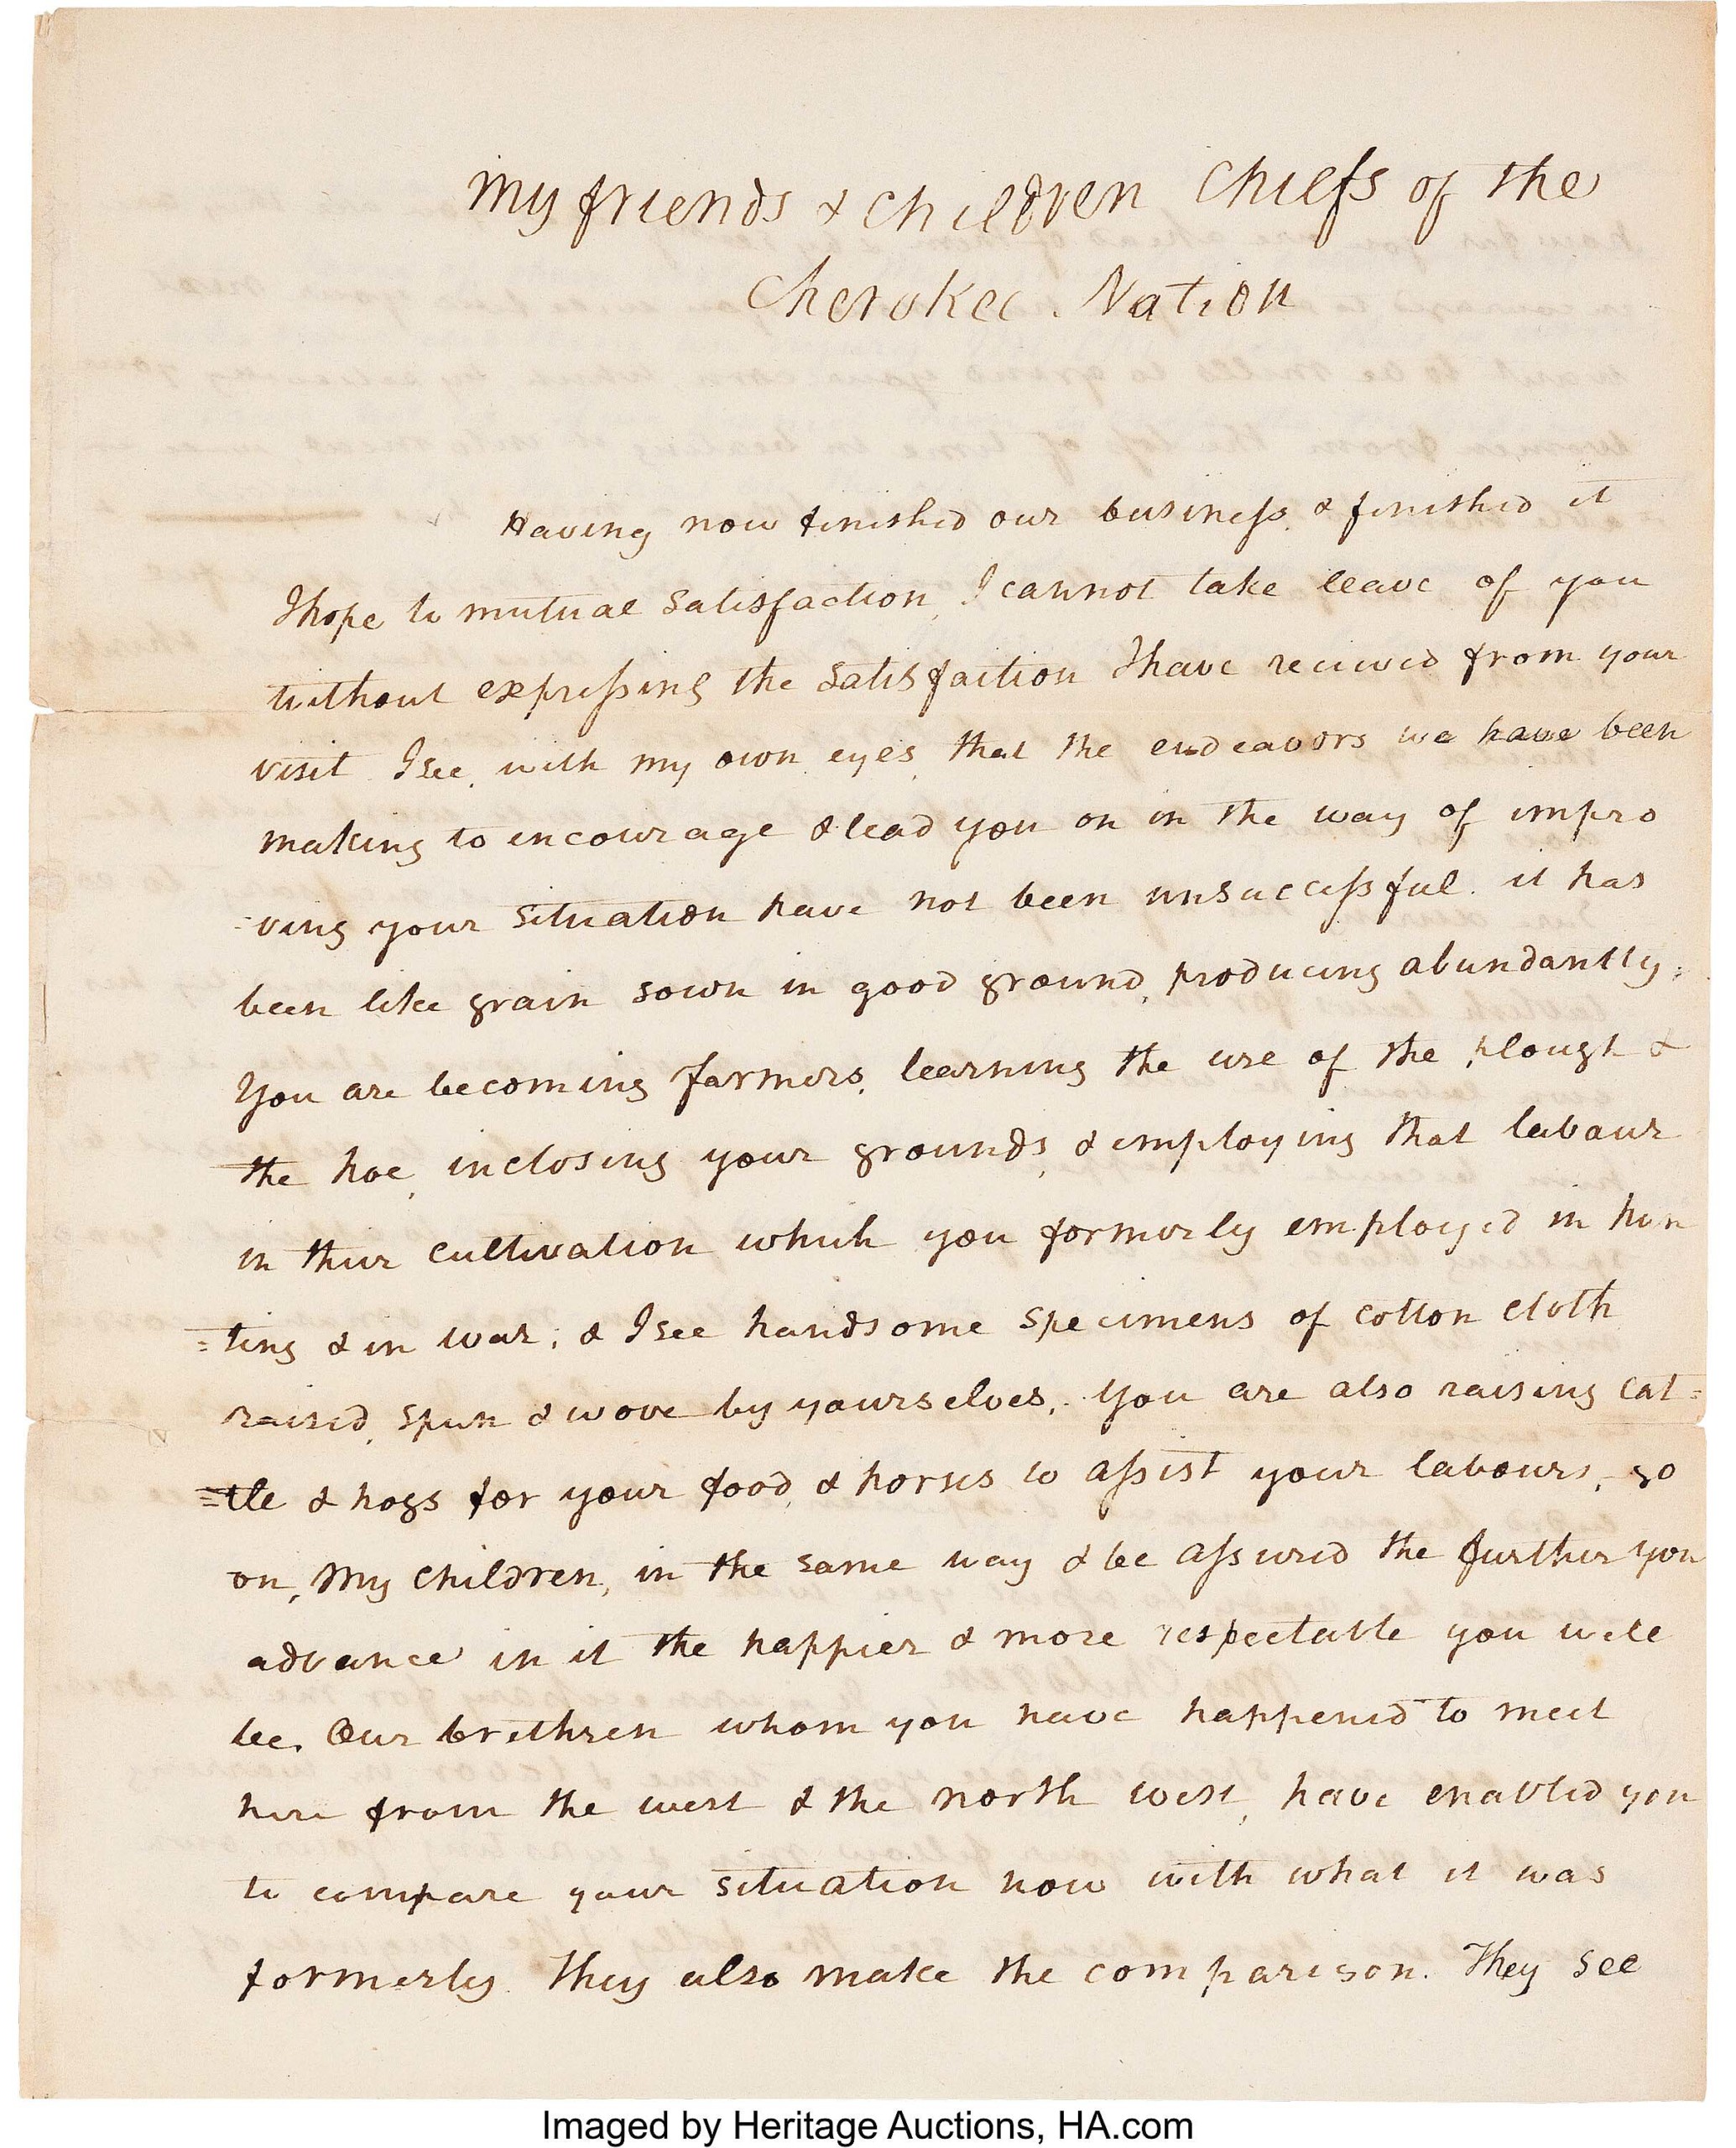 My friends & children Chiefs of the
Cherokee Nation
Having now finished our business, & finished it
I hope to mutual satisfaction, I cannot take leave of you
without expressing the satisfaction I have recieved from your
visit. I see, with my own eyes, that the endeavors we have been
making to encourage & lead you on in the way of impro
-ving your situation have not been unsuccessful. it has
been like grain sown in good ground, producing abundantly.
You are becoming farmers, learning the use of the plough &
the hoe, inclosing your grounds, & employing that labour
in their cultivation which you formerly employed in hun
=ting & in war; & I see handsome specimens of cotton cloth
raised, spun & wove by yourselves, You are also raising cat=
=tle & hogs for your food, & horses to assist your labours, go
on, My children, in the same way & be assured the further you
advance in it the happier & more respectable you will
be. Our brethren whom you have happened to meet
here from the west & the north west, have enabled you
to compare your situation now with what it was
formerly. They also make the comparison. They see
Imaged by Heritage Auctions, HA.com